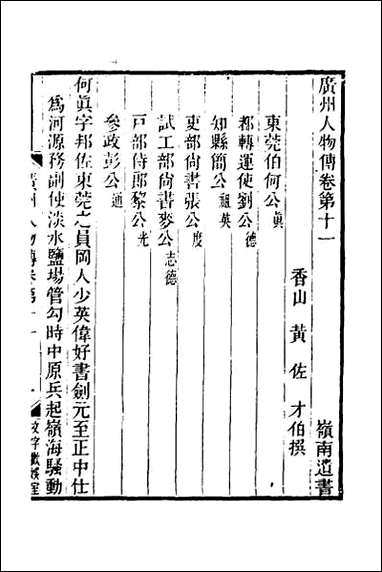 廣州人物傳卷第十一 嶺南遺書
香山 黃佐 才伯撰
東莞伯何公真
都轉運使劉公德
知縣簡公祖英
吏部尚書張公度
試工部尚書麥公志德
戶部侍郎黎公光
參政彭公通
何真字邦佐東莞之員岡人少英偉好書劍元至正中仕
為河源務副使淡水鹽場管勾時中原兵起嶺海騷動
廣州人物傳卷第十一 一